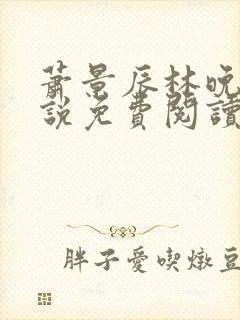 蕭景辰林晚
說免費閱讀
胖子愛喫燉豆